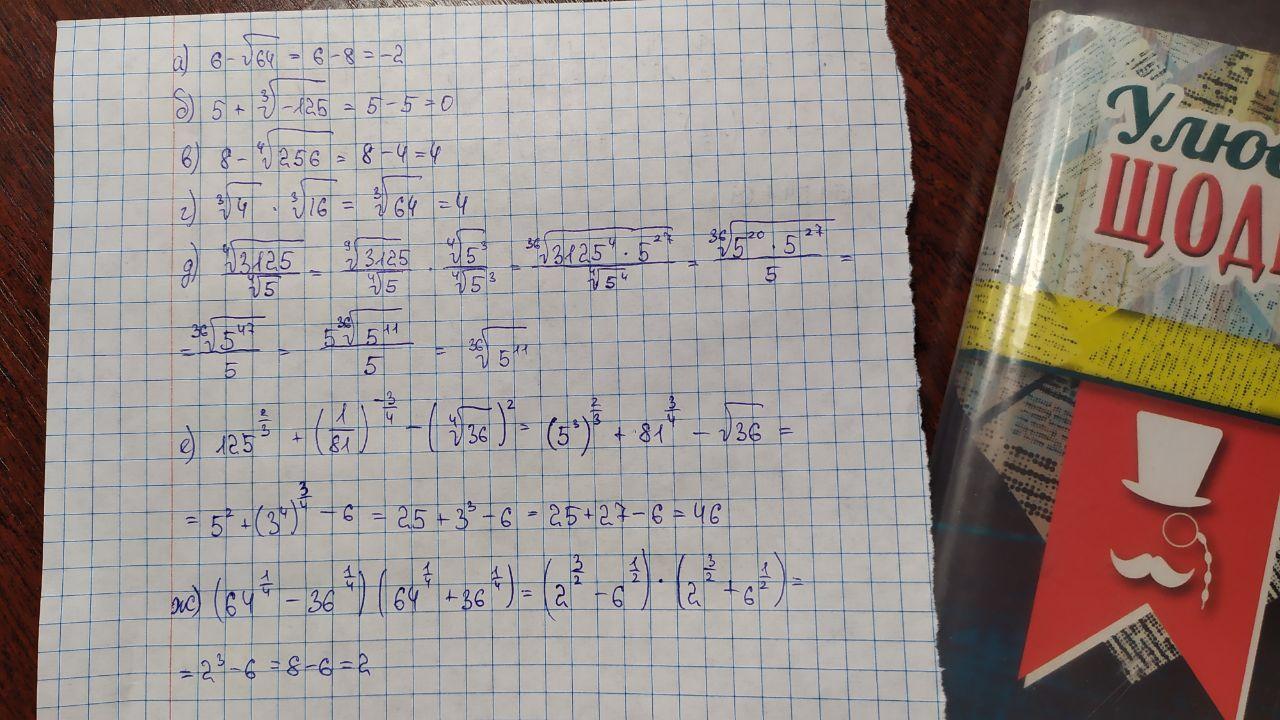 а) 6 - √64 = 6 - 8 = -2
б) 5 + ∛(-125) = 5 - 5 = 0
в) 8 - ∜256 = 8 - 4 = 4
г) ∛4 · ∛16 = ∛64 = 4
д) ⁹√3125 / ∜5 = ⁹√3125 / ∜5 · ∜5³ / ∜5³ = ³⁶√(3125⁴ · 5²⁷) / ∜5⁴ = ³⁶√(5²⁰ · 5²⁷) / 5 =
= ³⁶√5⁴⁷ / 5 = 5 ³⁶√5¹¹ / 5 = ³⁶√5¹¹
е) 125^(2/3) + (1/81)^(-3/4) - (∜36)² = (5³)^(2/3) + 81^(3/4) - √36 =
= 5² + (3⁴)^(3/4) - 6 = 25 + 3³ - 6 = 25 + 27 - 6 = 46
ж) (64^(1/4) - 36^(1/4)) (64^(1/4) + 36^(1/4)) = (2^(3/2) - 6^(1/2)) · (2^(3/2) + 6^(1/2)) =
= 2³ - 6 = 8 - 6 = 2